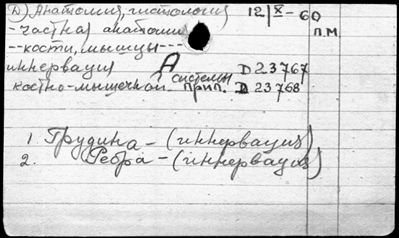 D) Анатомия, гистология 12/X-60
- частная анатомия П.М.
-- кости, мышцы ---
иннервация А системы D 23767
костно-мышечной прип. D 23768
1. Грудина - (иннервация)
2. Ребра - (иннервация)